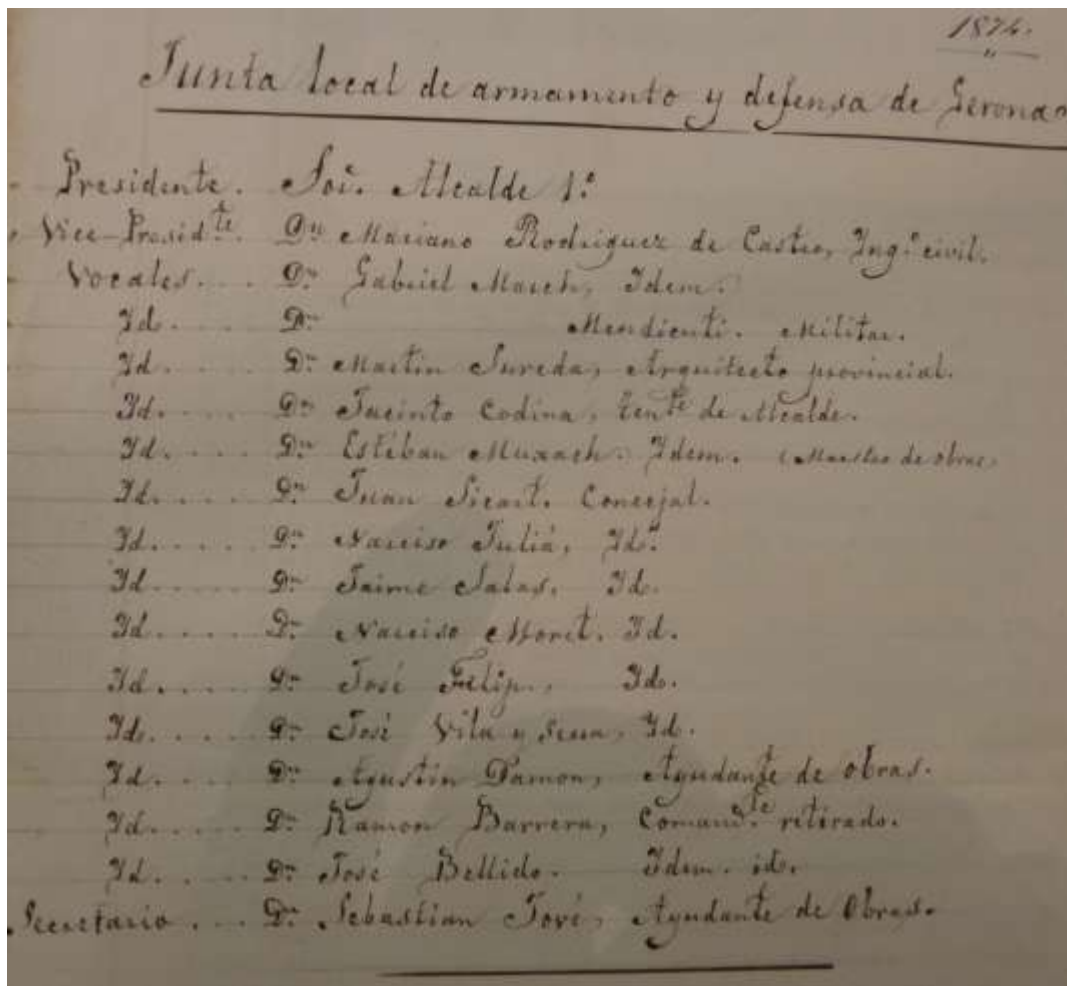 1874.
Junta local de armamento y defensa de Gerona
Presidente. Sor. Alcalde 1.º
Vice-Presid.te Dn Mariano Rodriguez de Castro, Ing.º civil.
Vocales... Dn Gabriel March, Idem.
Id..... Dn Mendicuti. Militar.
Id..... Dn Martin Sureda, Arquitecto provincial.
Id..... Dn Jacinto Codina, Ten.te de Alcalde.
Id..... Dn Estéban Muxach. Idem. (Maestro de obras)
Id..... Dn Juan Sicart. Concejal.
Id..... Dn Narciso Juliá, Id.
Id..... Dn Jaime Salas, Id.
Id..... Dn Narciso Id.
Id..... Dn José Felip, Id.
Id..... Dn José Vila y Serra, Id.
Id..... Dn Agustin Damon, Ayudante de obras.
Id..... Dn Ramon Barrera, Comand.te retirado.
Id..... Dn José Bellido. Idem. id.
Secretario... Dn Sebastian Ayudante de Obras.